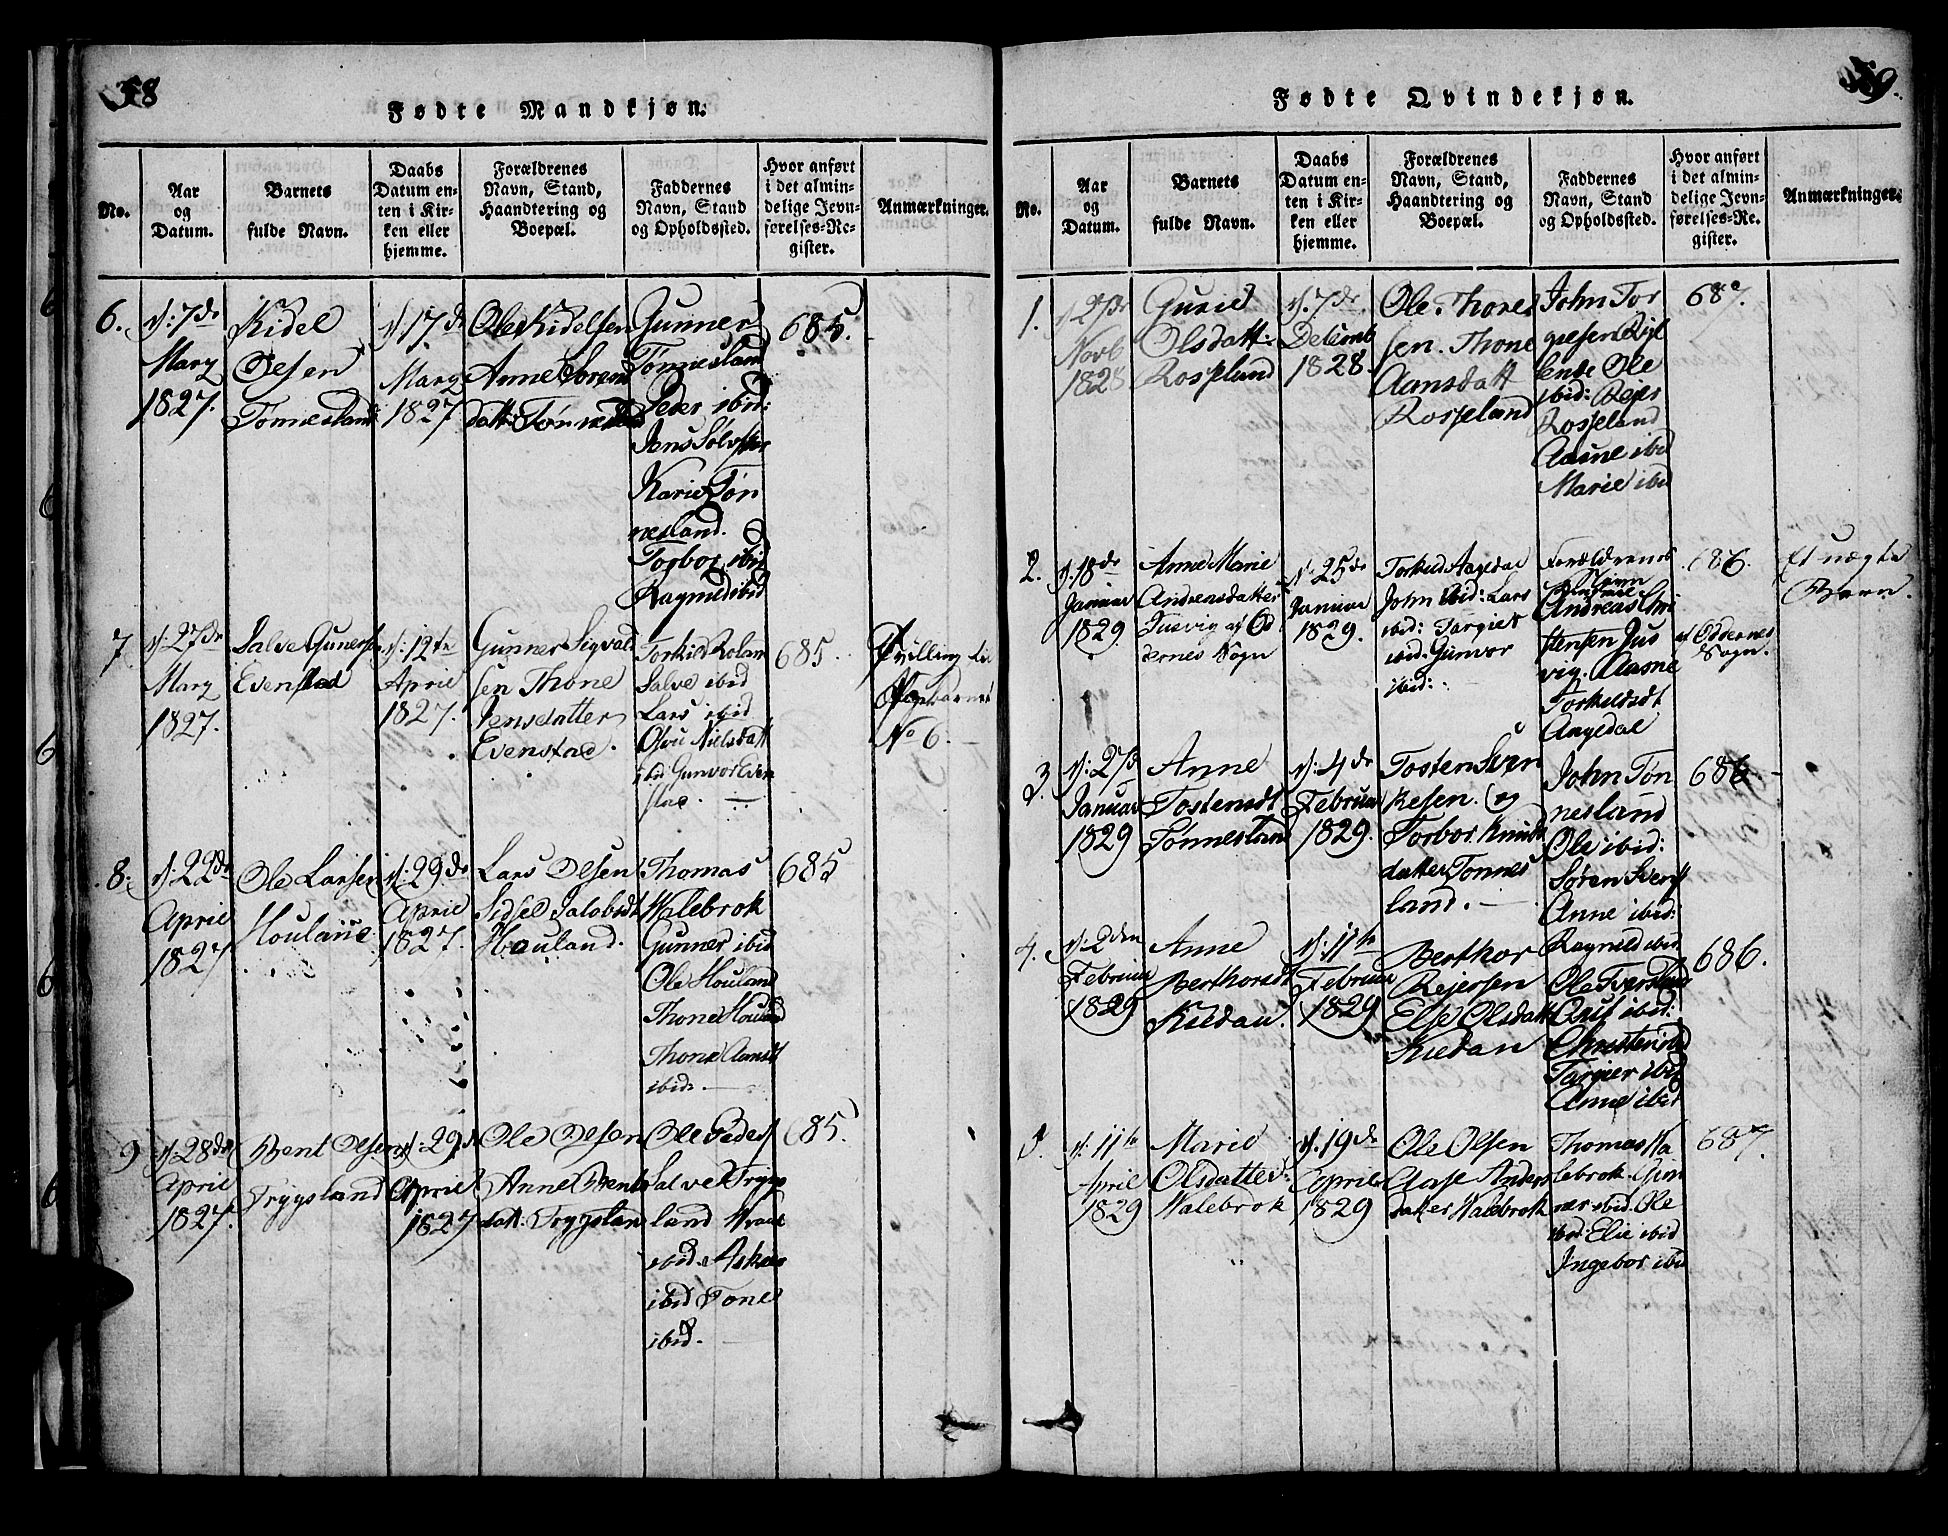 58
Fødte Mandkjøn.
No.
Aar
og
Datum.
Barnets
fulde Navn.
Daabs
Datum en-
ten i Kir-
ken eller
hjemme.
Forældrenes
Navn, Stand,
Haandtering og
Boepæl.
Faddernes
Navn, Stand
og Opholdssted.
Hvor anført
i det almin-
delige Jevn-
førelses-Re-
gister.
Anmærkninger.
6.
d: 7de
Marz
1827.
Kidel
Olsen
Tønnesland
d: 17de
Marz
1827
Ole Kidelsen
Anne Sorens
datt: Tønnesland
Gunner
Tønnesland
Peder ibid:
Jens Sølvfter
Karie Tøn
nesland.
Torbor ibid
Ragnild ibid
685.
7
d: 27de
Marz
1827.
Salve Gunersen
Evenstad
d: 12te
April
1827.
Gunner Sigvald
sen Thone
Jensdatter
Evenstad.
Torkild
Salve ibid
Lars ibid
Nielsdatt
ibid Gunvor Even
stad.
685.
Tvilling til
No 6.
8.
d: 22de
April
1827
Ole Larsen
Houland
d: 29de
April
1827.
Lars Olsen
Sidsel Jakobsdt
Houland.
Thomas
Walebrok
Gunner ibid
Ole Houland
Thone Houland
Thone Aansdt
ibid.
685
9
d: 28de
April
1827.
Bent Olsen
Trygsland
d: 29d
April
1827
Ole Olsen
Anne Bents
datt: Trygsland
Ole Peders
Salve Trygs
land
ibid. Asknes
ibid Tone
ibid.
685.
59.
Fødte Qvindekjøn.
No.
Aar
og
Datum.
Barnets
fulde Navn.
Daabs
Datum en-
ten i Kir-
ken eller
hjemme.
Forældrenes
Navn, Stand,
Haandtering og
Boepæl.
Faddernes
Navn, Stand
og Opholdssted.
Hvor anført
i det almin-
delige Jevn-
førelses-Re-
gister.
Anmærkninger.
1.
Novb
1828
Gurie
Olsdatt:
Rosseland
d. 7de
Decemb
1828.
Ole Thores
sen. Thone
Aansdatt
Rosseland
John Tor
giesen
Ole
ibid: Reier
Rosseland
Aasne ibid
Marie ibid
2.
d: 18de
Januar
1829
Anne Marie
Andreasdatter
Jusvig af Od
dernes Sogn
d. 25de
Januar
1829.
Torkild Aagedal
John ibid: Lars
ibid: Targier
ibid. Gunvor
ibid:
Forældrenes
Navn
Andreas Chri
stensen Jus
vig. Aasne
Torkildsdt
Aagedal
686.
af Oddernes
Sogn.
Et uægte
Barn.
3.
d: 27d
Januar
1829
Anne
Tostensdt
Tønnesland
d: 4de
Februar
1829.
Tosten Sven
kesen. og
Torbor Knuds
datter Tønnes
land.
John Tøn
nesland
Ole ibid:
Søren Svens
Anne ibid:
Ragnild ibid
686
4.
d: 2den
Februar
1829
Anne
Berthorsdt
Kiedau.
d: 11te
Februar
1829
Berthor
Reiersen
Else Olsdatt
Kiedan
Ole Tversland
ibid:
Christen ibid
Targier ibid
Anne ibid
686.
5.
d: 11te
April
1829
Marie
Olsdatter
Walebrok
d: 19de
April
1829
Ole Olsen
Aase Anders
datter Walebrok
Thomas Wa
lebrok. Gun
nar ibid. Ole
ibid: Elie ibid
Ingebor ibid
687.